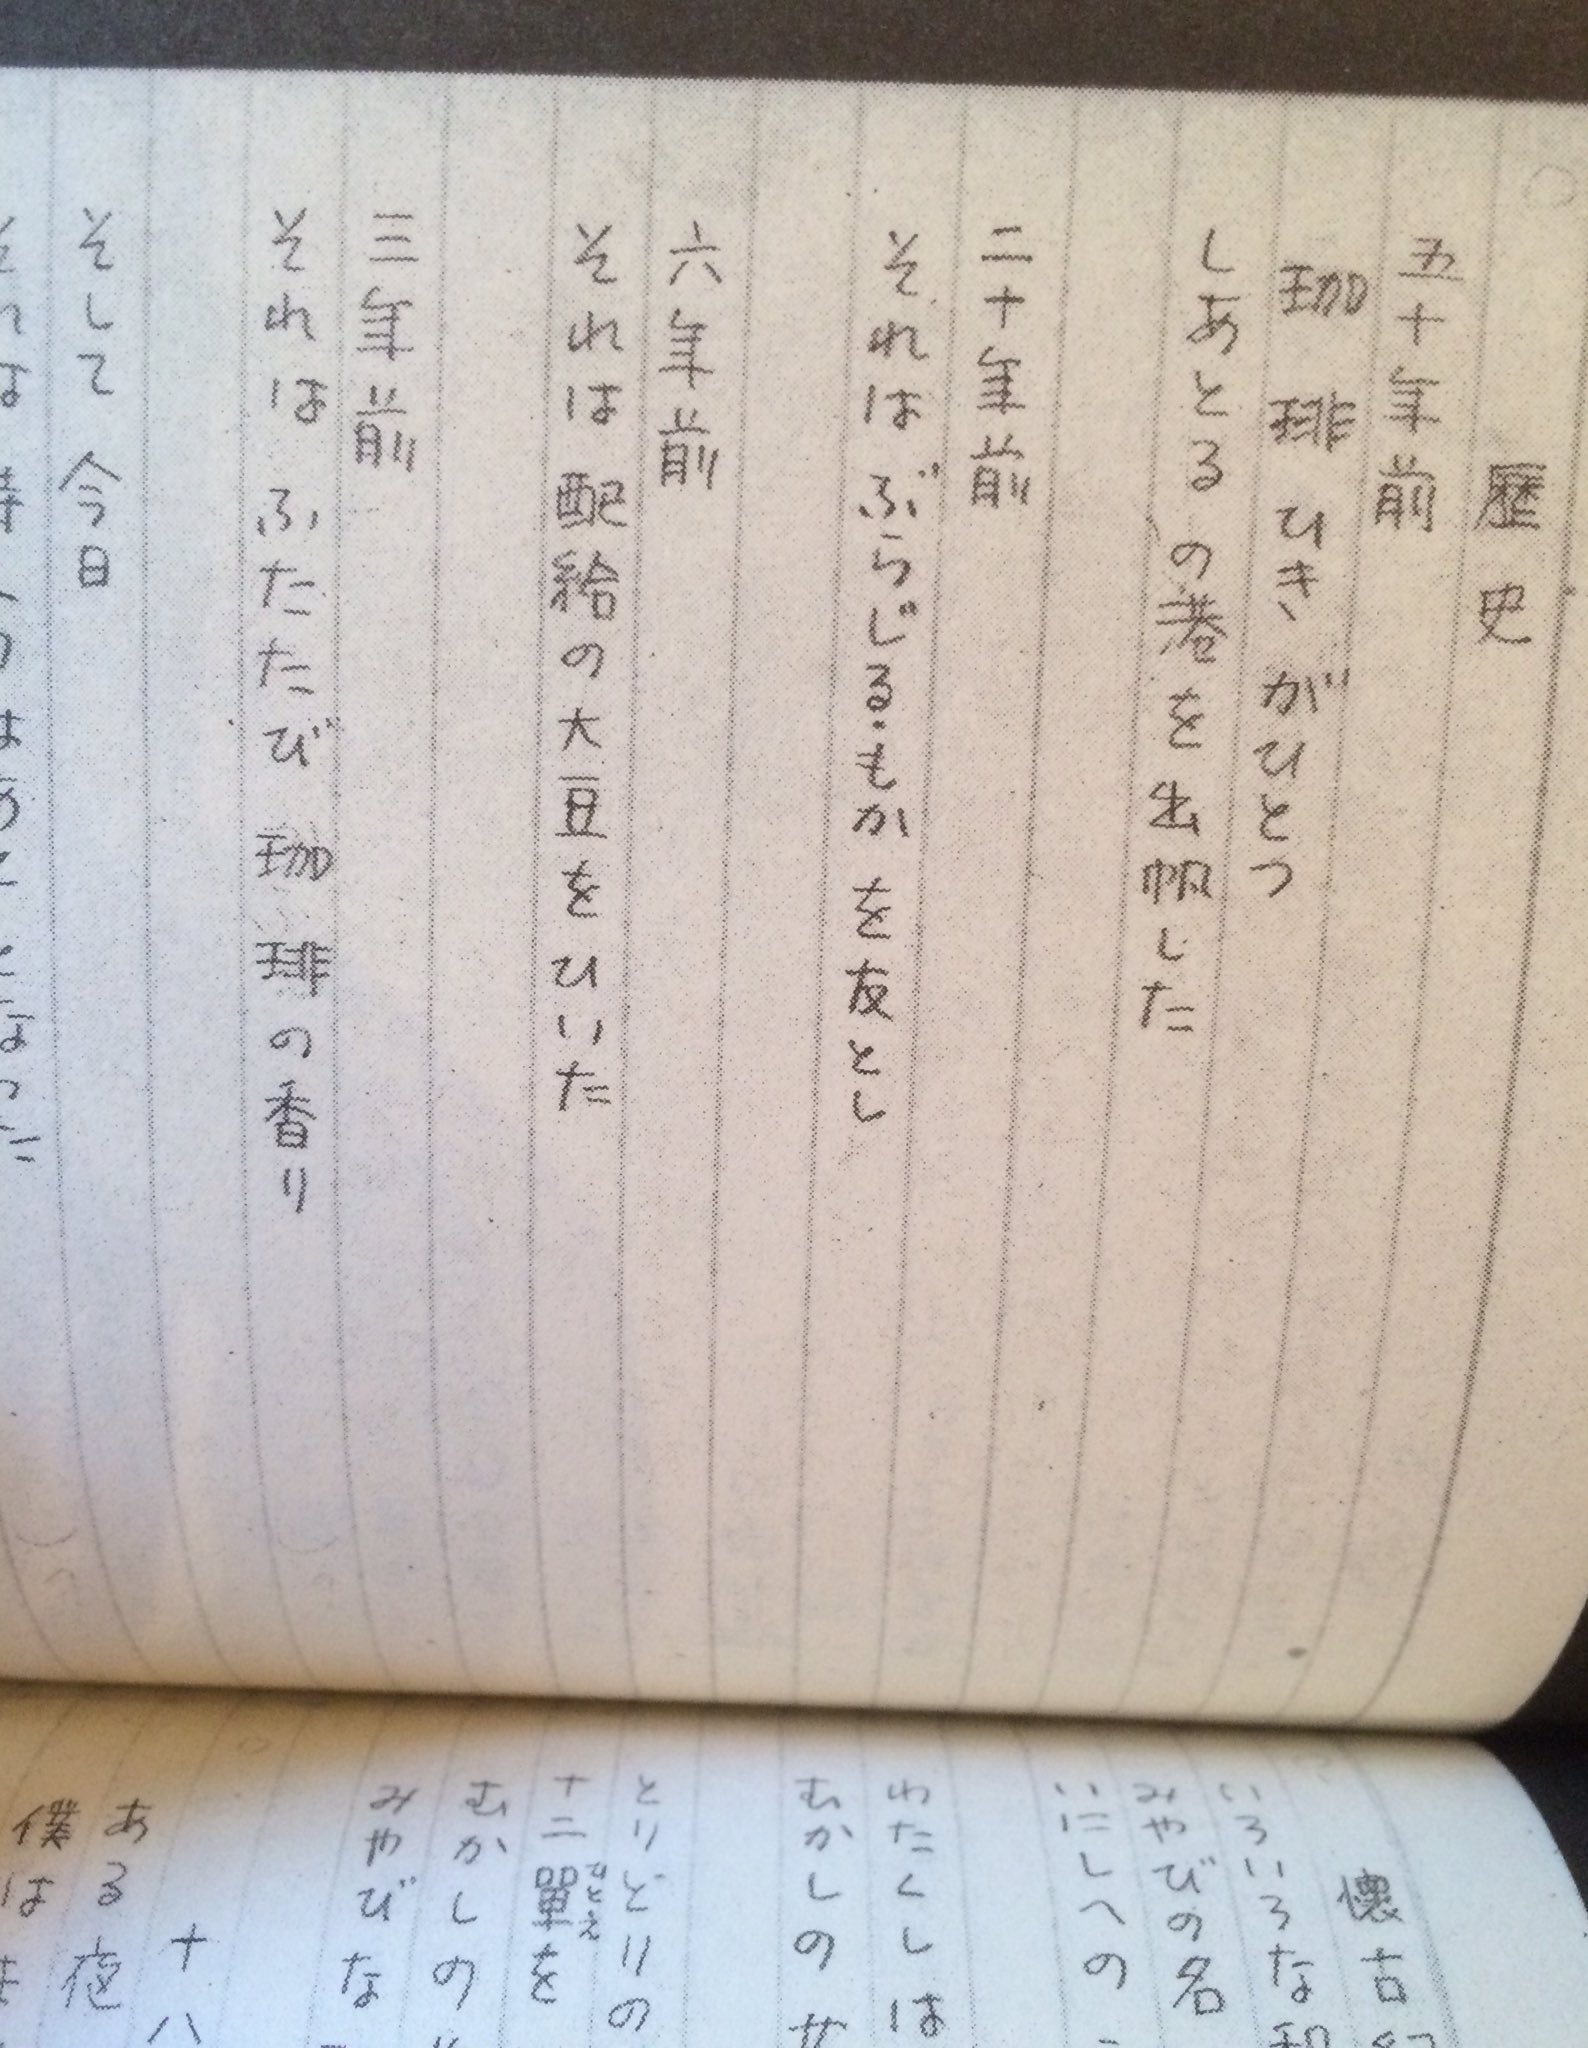 歴史
五十年前
珈琲ひきがひとつ
しあとるの港を出帆した
二十年前
それはぶらじる・もかを友とし
六年前
それは配給の大豆をひいた
三年前
それはふたたび珈琲の香り
そして今日
それは
懐古
いろいろな和
みやびの名
いにしへの
わたくしは
むかしの
とりどりの
十二單を
ひとえ
むかしの
みやびな
十八
ある夜
僕は